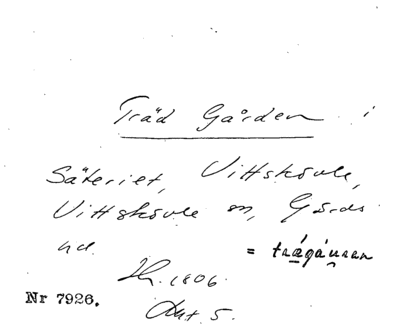 Träd Gården i
Säteriet, Vittskövle,
Vittskövle sn, Gärds
hd.
= 
1806.
Nr 7926.
Akt 5.